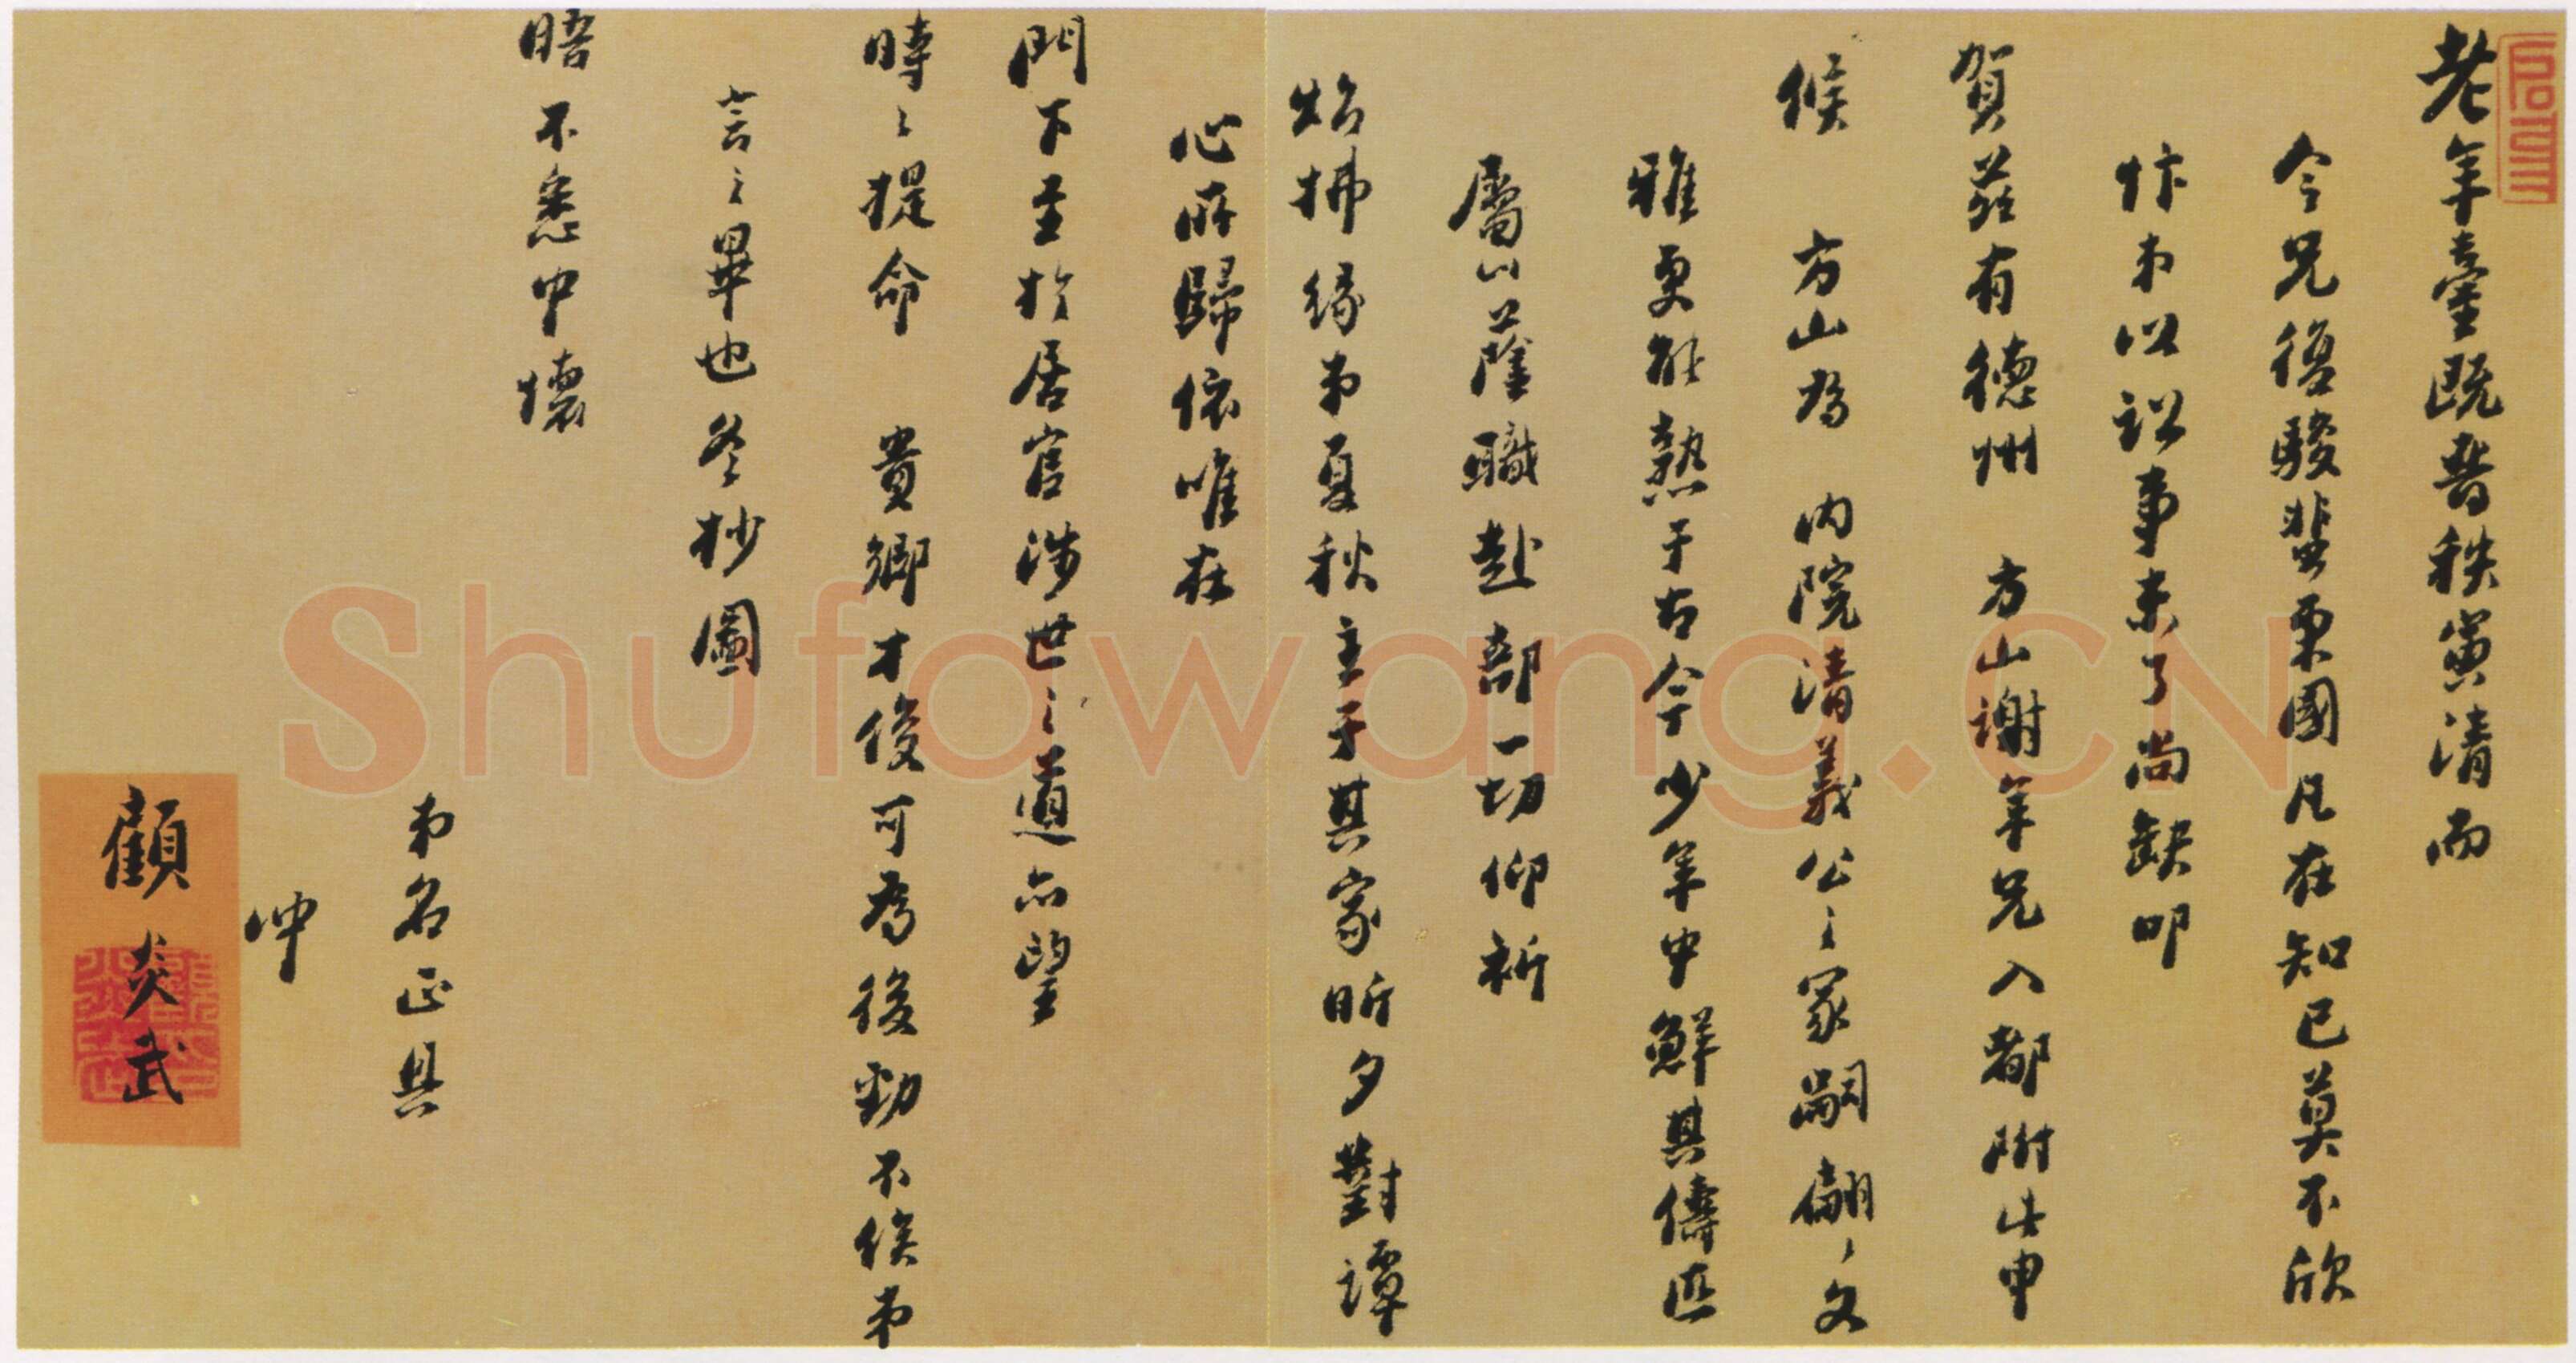 老年臺既晉秩寅清而
令兄復駿蜚栗國凡在知已莫不欣
忭弟以訟事未了尚缺叩
賀茲有德州 方山謝年兄入都附此申
候 方山為 內院清義公〻冢嗣翩〻文
雅更能熟于古今少年中鮮其儔匹
屬以蔭職赴部一切仰祈
炤拂緣弟夏秋主于其家昕夕對譚
心所歸依唯在
門下至於居官涉世〻道亦望
時〻提命 貴鄉才俊可為後勁不俟弟
言〻畢也冬抄圖
晤不悉中懷
弟名正具
沖
顧炎武
Shufawang.CN